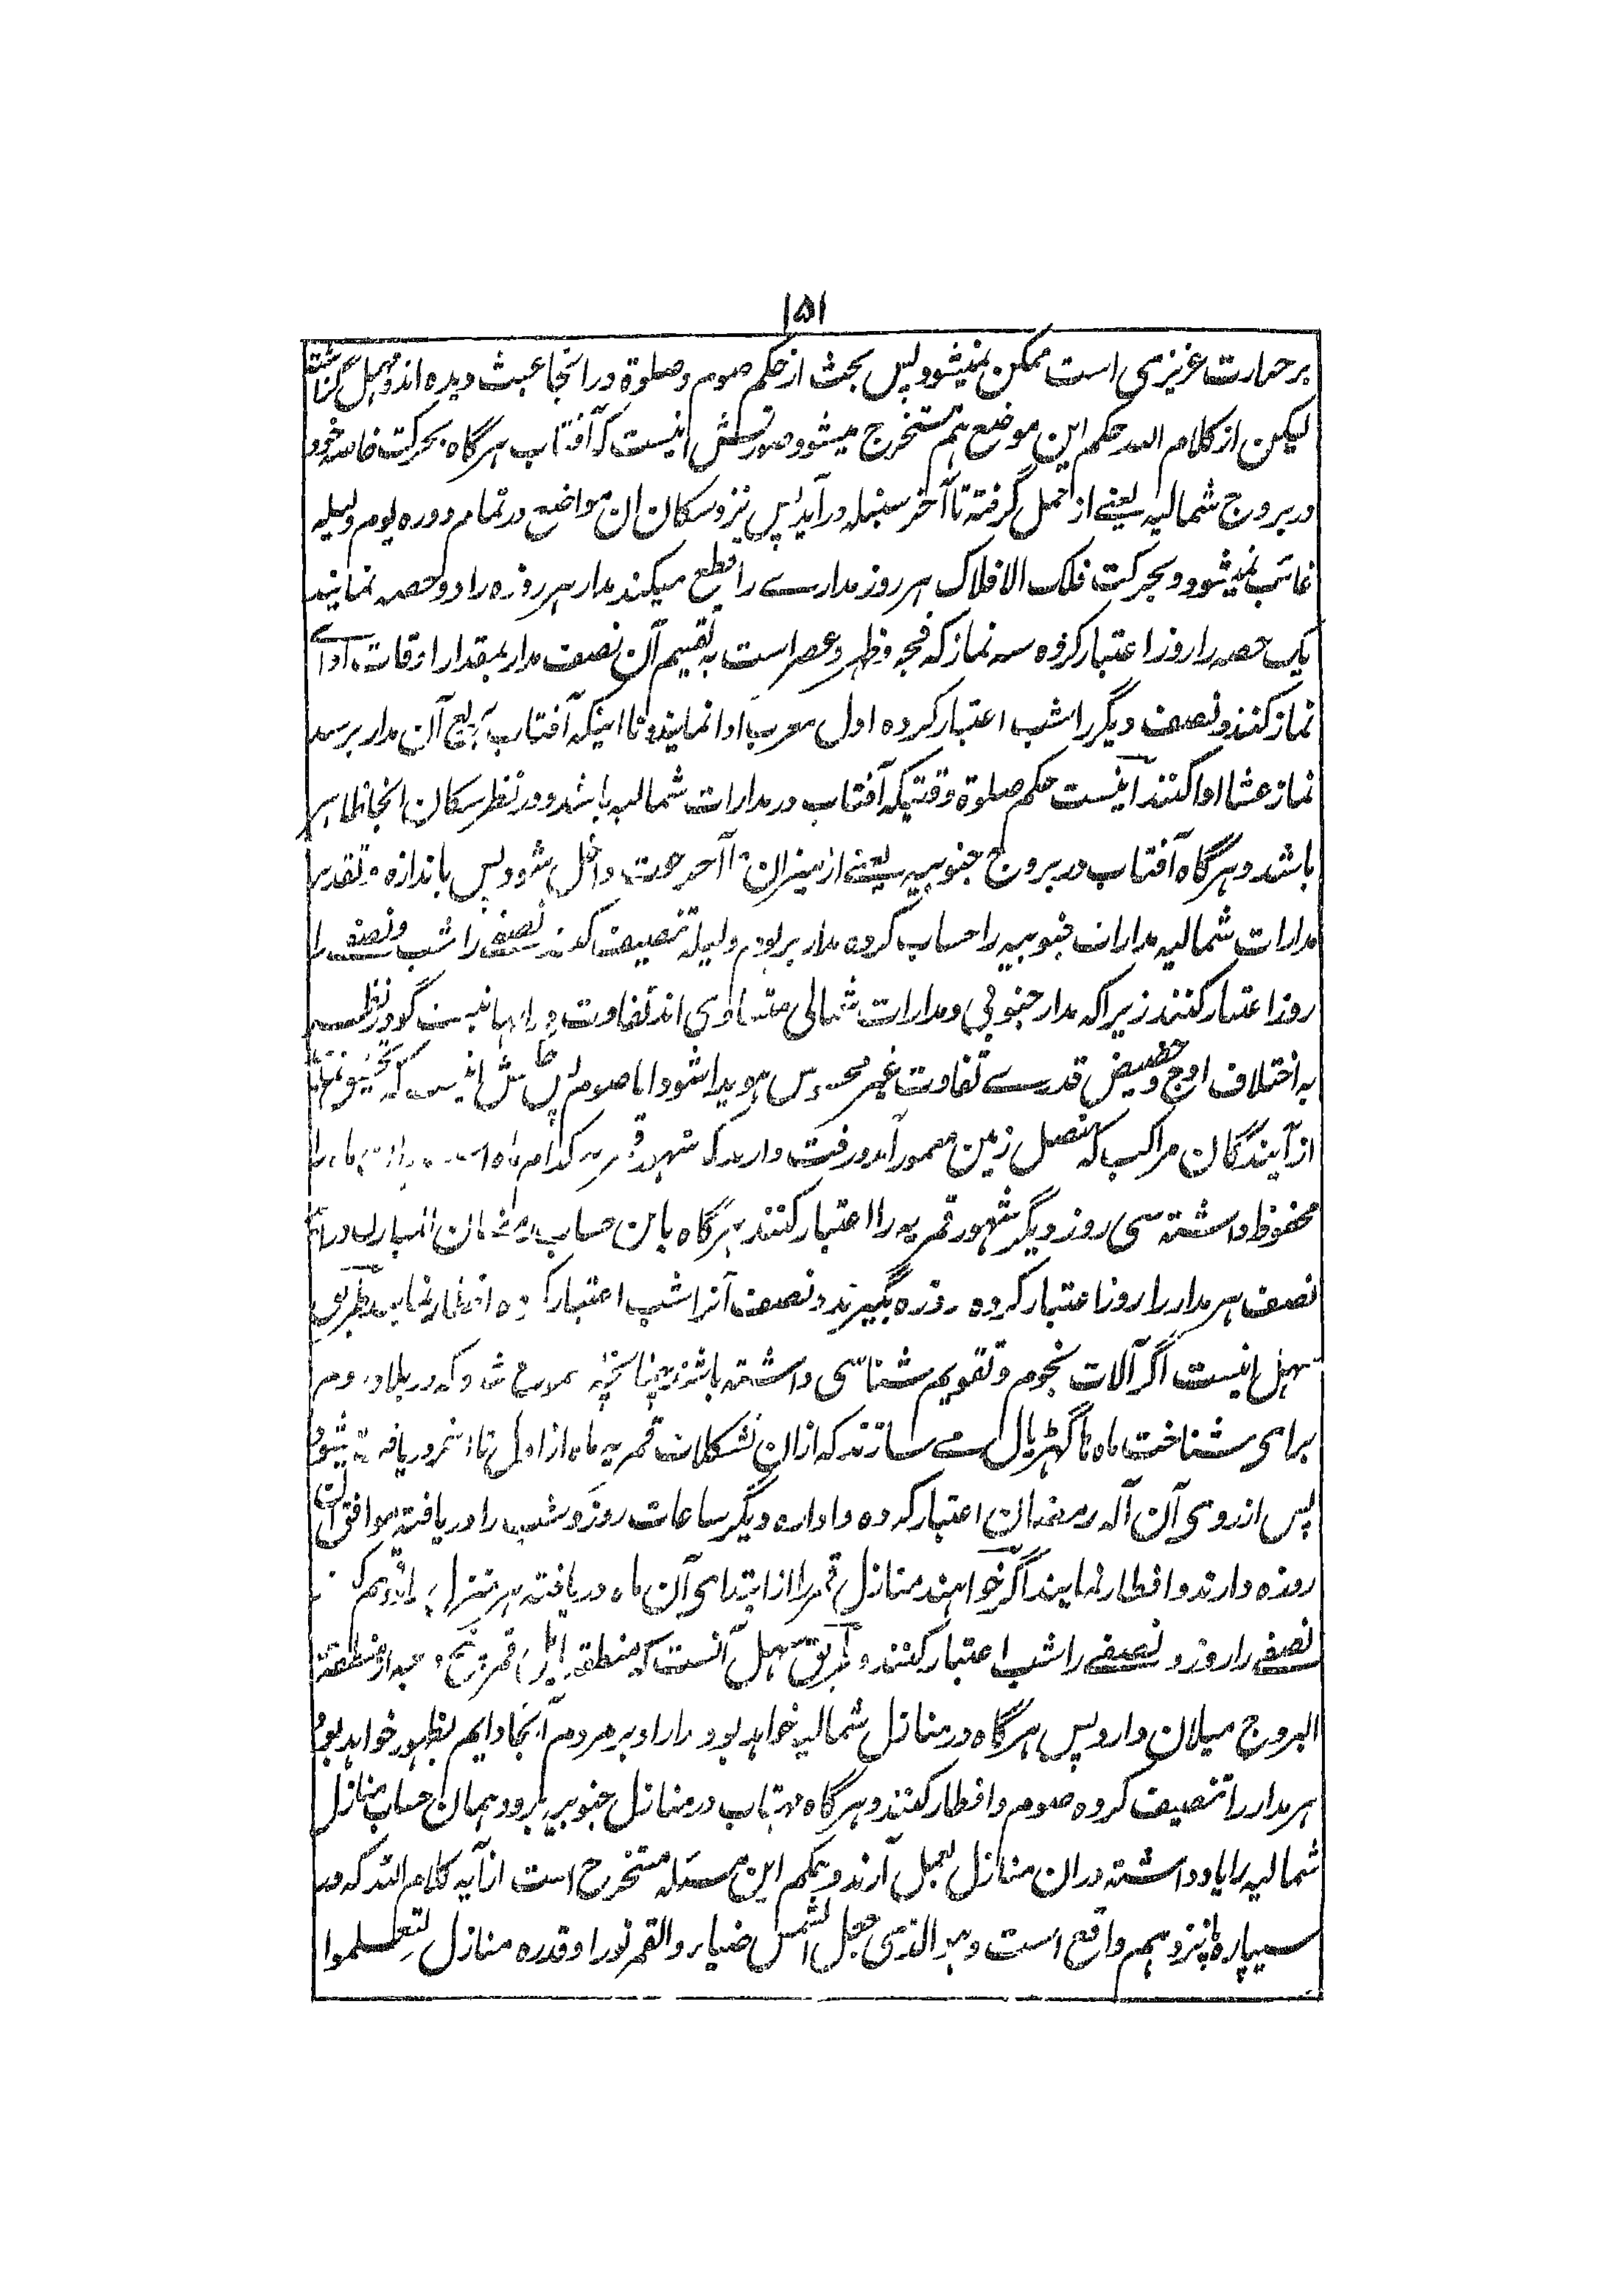 ۱۵۱
بر حرارت غریزی است ممکن نمیشود پس بحث از حکم صوم و صلوة در انجا عبث دیده اند و مهمل گذاشته
لیکن از کلام الله حکم این موضع هم مستخرج میشود صورتش اینست که آفتاب هرگاه بحرکت خاصه خود
در بروج شمالیه یعنے از حمل گرفته تا آخر سنبله در آید پس نزد سکان ان مواضع در تمام دوره یوم ولیله
غائب نمیشود و بحرکت فلک الافلاک هر روز مدارے را قطع میکند مدار هر روزه را دو حصه نمایند
یک حصه را روز اعتبار کرده سه نماز که فجر و ظهر و عصر است به تقسیم آن نصف مدار بمقدار اوقات ادائے
نماز کنند و نصف دیگر را شب اعتبار کرده اول مغرب ادا نمایند و تا اینکه آفتاب بربع آن مدار برسد
نماز عشا ادا کنند اینست حکم صلوة وقتیکه آفتاب در مدارات شمالیه باشد و در نظر سکان انجا ظاهر
باشد و هرگاه آفتاب در بروج جنوبیه یعنے از میزان تا آخر حوت داخل شود پس باندازه و تقدیر
مدارات شمالیه مدارات جنوبیه را حساب کرده مدار هر یوم ولیله تنصیف کنند نصفے را شب و نصفے را
روز اعتبار کنند زیرا که مدار جنوبی و مدارات شمالی متساوی اند تفاوت در انها نیست گو در نظر
به اختلاف اوج و حضیض قدرے تفاوت غیر محسوس هویدا شود اما صوم پس اینست که
از آیندگان مراکب که متصل زمین معمور آمد و رفت دارند که شهور قمریه کدام ماه است ماه را
محفوظ داشته سی روز دیگر شهور قمریه را اعتبار کنند هرگاه باین حساب رمضان المبارک در آید
نصف هر مدار را روز اعتبار کرده روزه بگیرند و نصف آنرا شب اعتبار کرده افطار نمایند طریق
سهل اینست اگر آلات نجوم و تقویم شناسی داشته باشند چنانچه شد که در بلاد روم
برای شناخت ماه ها گهڑیال مے سازند که ازان تشکلات قمریه ماه از اول تا آخر دریافته میشود
پس از روی آن آله رمضان اعتبار کرده و اداره دیگر ساعات روز و شب را دریافته موافق آن
روزه دارند و افطار نمایند اگر خواهند منازل قمر را از ابتدای آن ماه دریافته هر منزل
نصفے را روز و نصفے را شب اعتبار کنند و طریق سهل آنست که منطقه قمر از منطقة
البروج میلان دارد پس هرگاه در منازل شمالیه خواهد بود مدار او بر مردم آنجا دایم بظهور خواهد بود
هر مدار را تنصیف کرده صوم و افطار کنند و هرگاه مهتاب در منازل جنوبیه برود همان حساب منازل
شمالیه را یاد داشته دران منازل بعمل آرند و حکم این مسئله مستخرج است از آیه کلام الله که در
سیپاره یازدهم واقع است و هو الذی جعل الشمس ضیاء و القمر نورا و قدره منازل لتعلموا